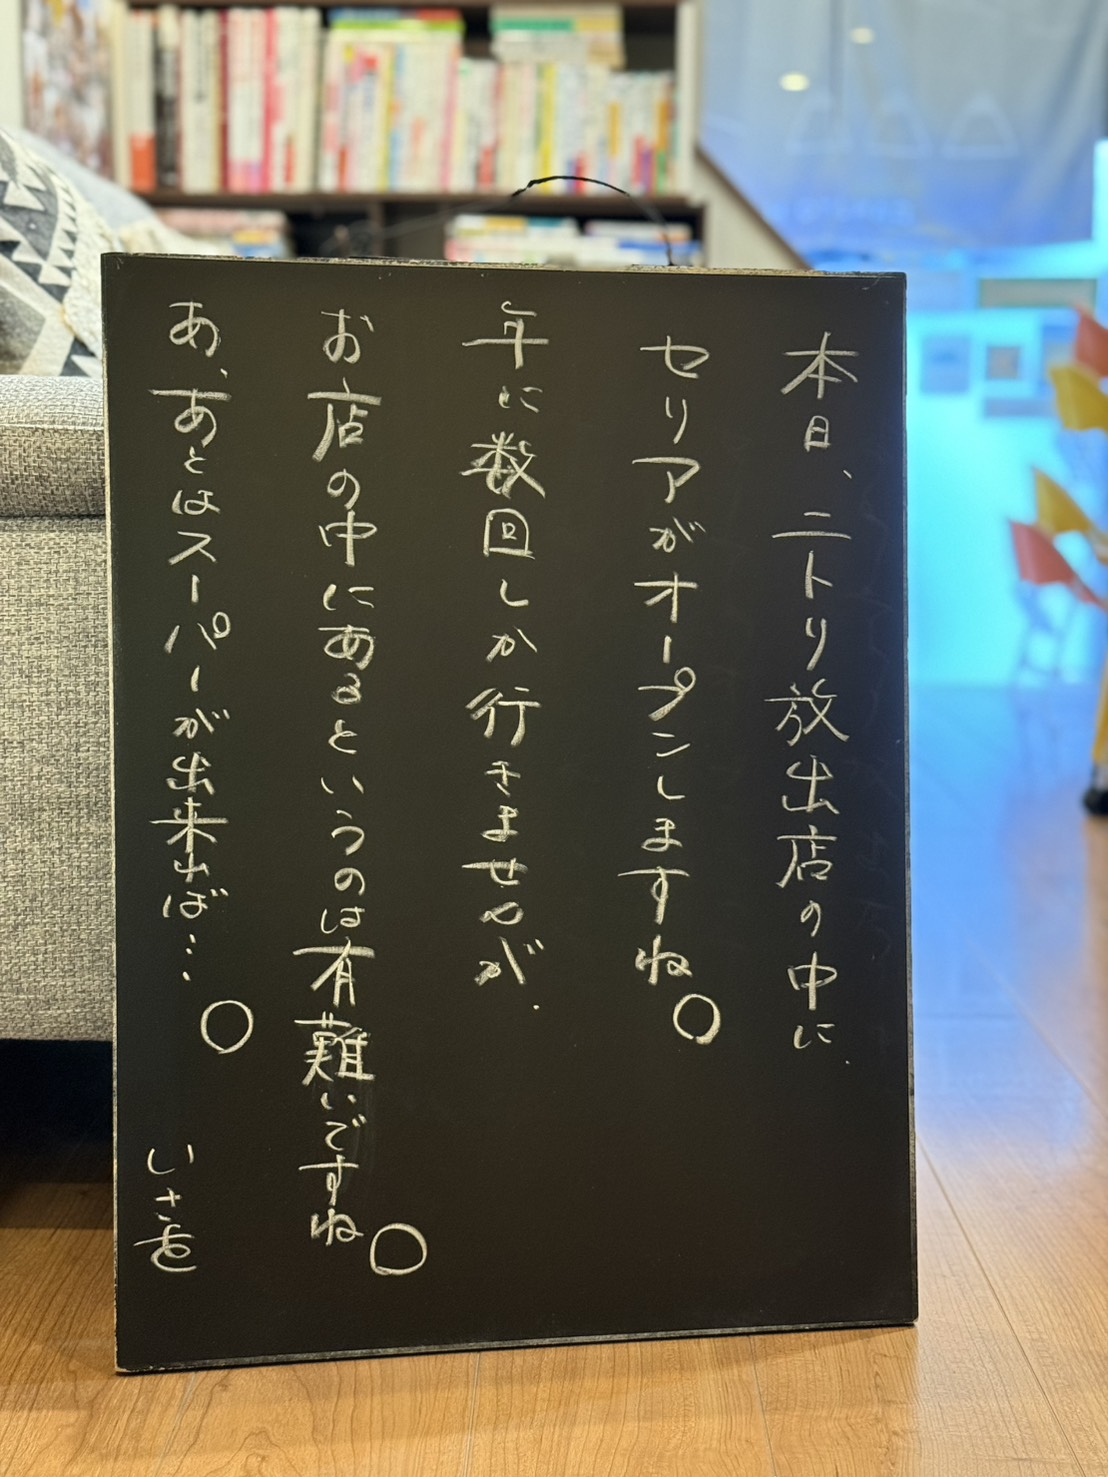 本日、ニトリ放出店の中に、
セリアがオープンしますね。
年に数回しか行きませんが、
お店の中にあるというのは有難いですね。
あ、あとはスーパーが出来れば…。